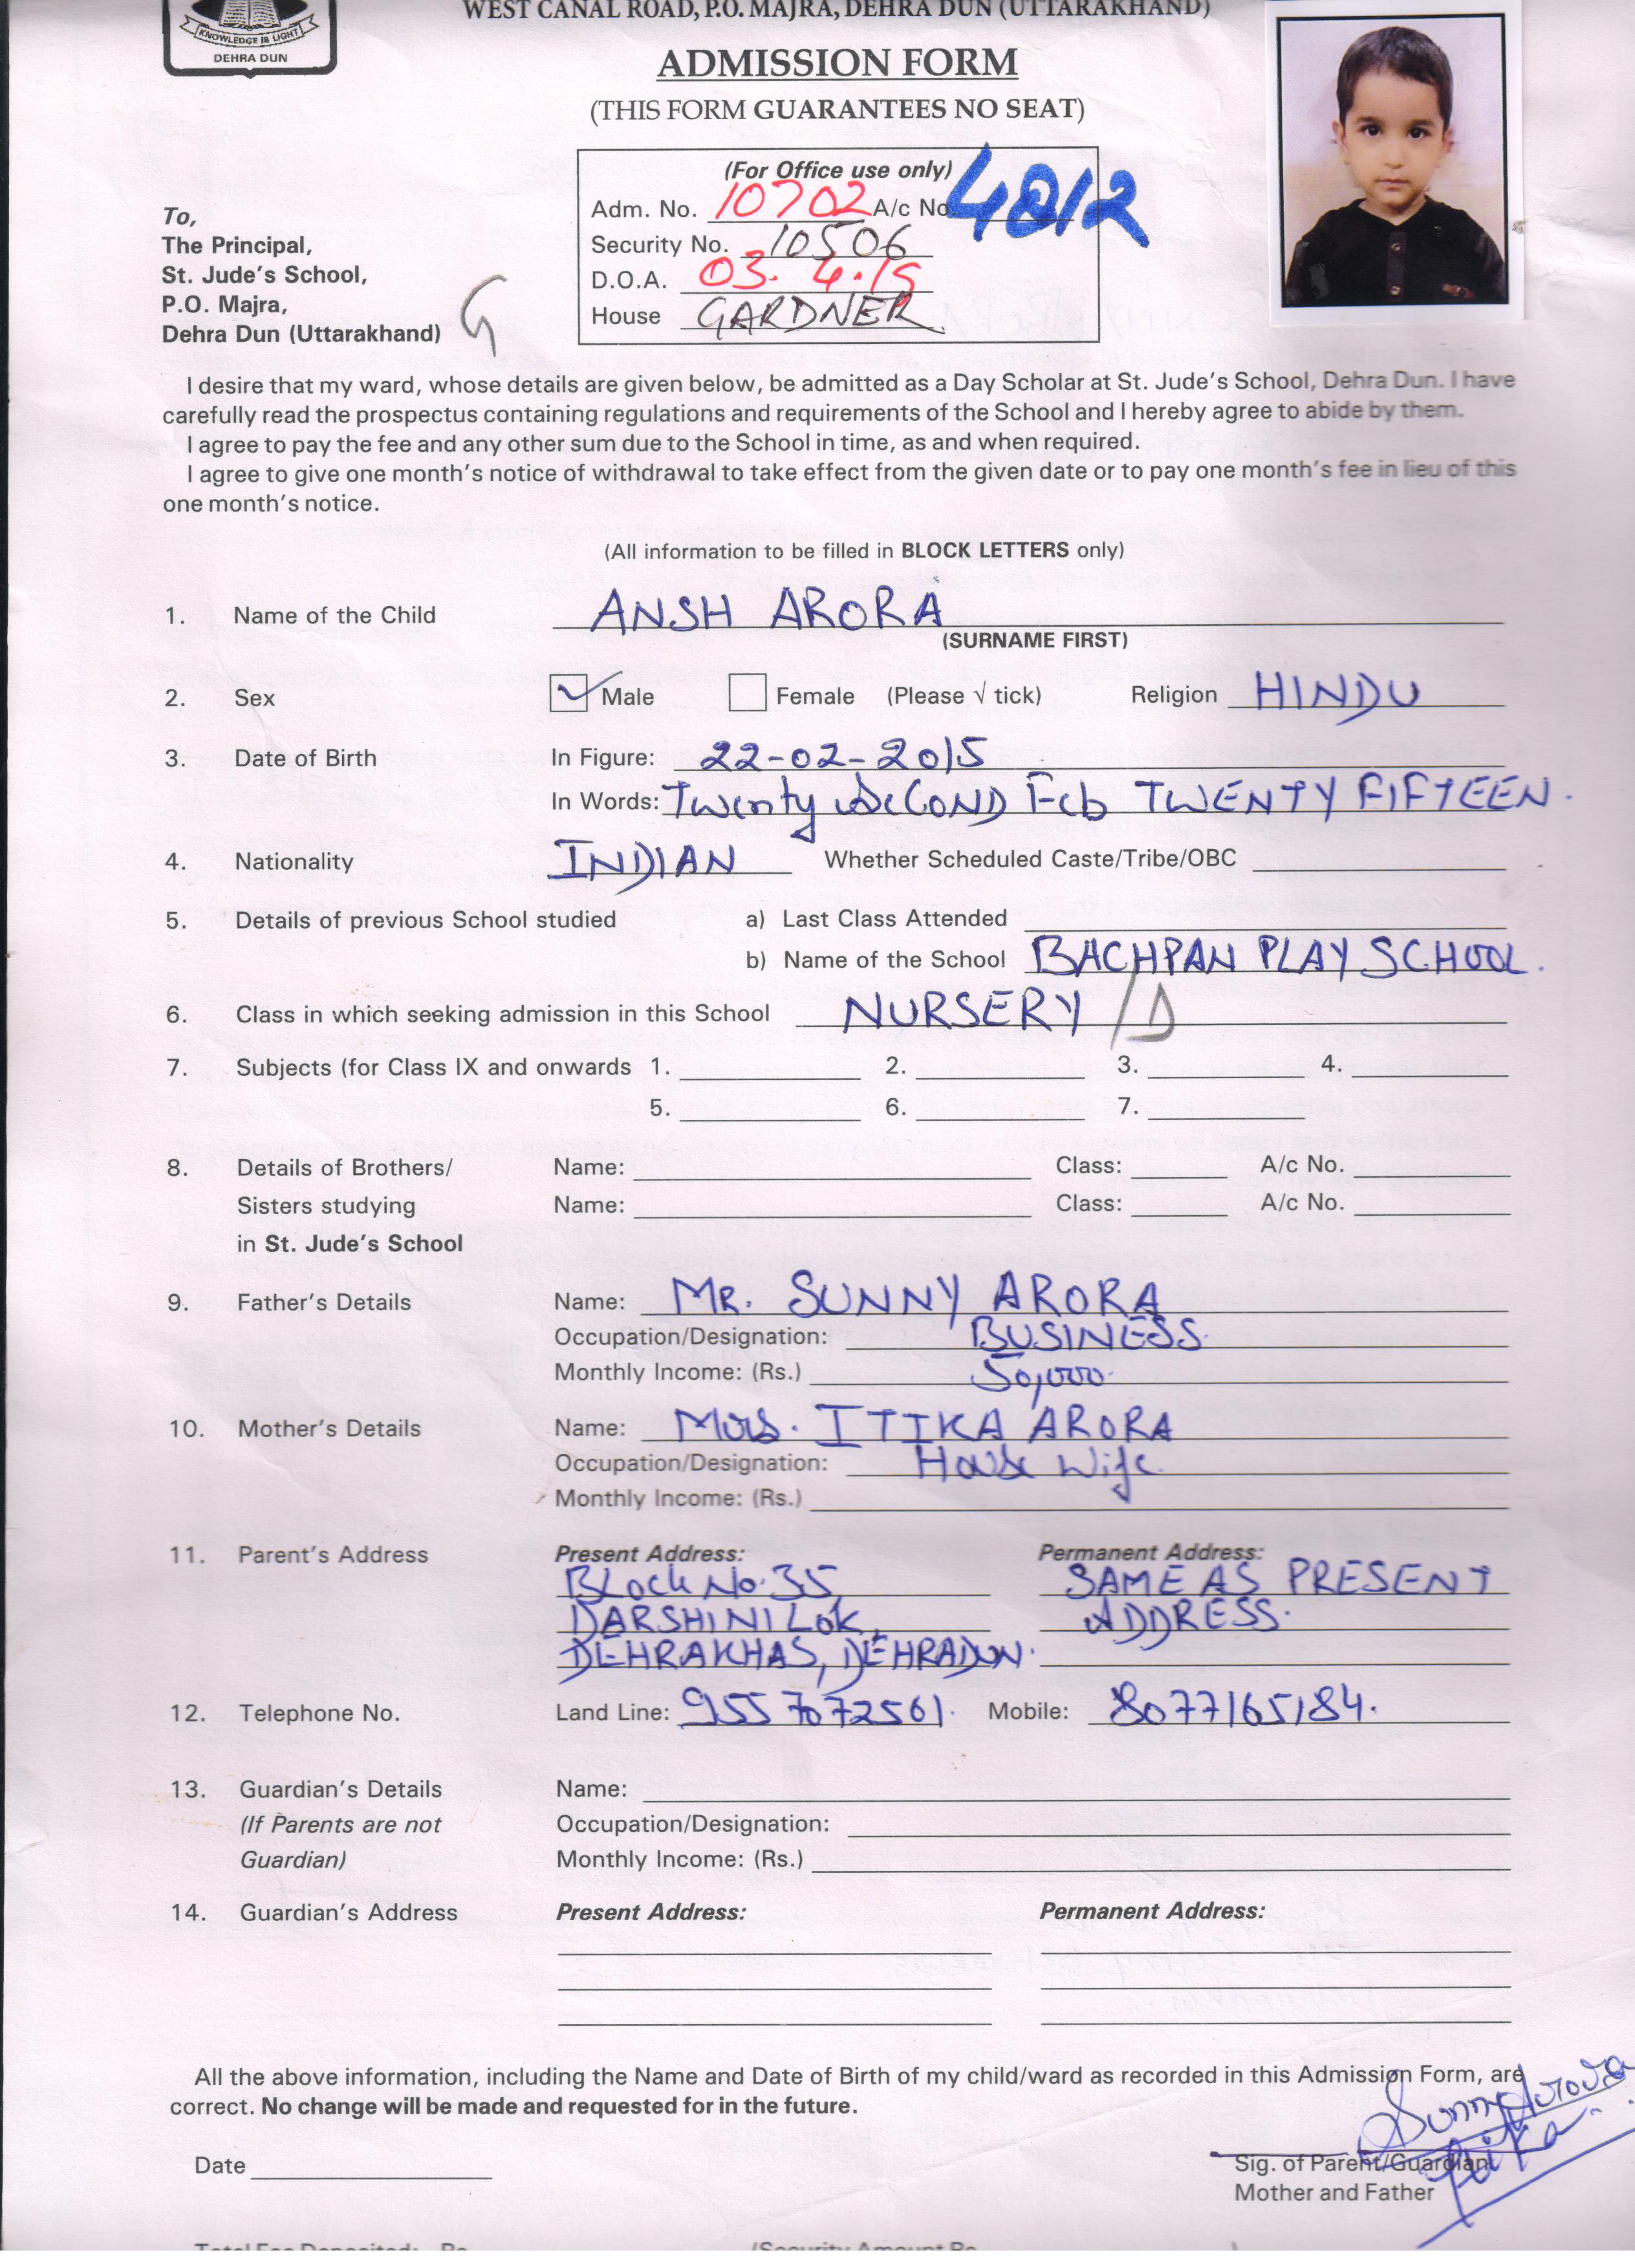 WEST CANAL ROAD, P.O. MAJRA, DEHRA DUN (UTTARAKHAND)
KNOWLEDGE IS LIGHT
DEHRA DUN
ADMISSION FORM
(THIS FORM GUARANTEES NO SEAT)
(For Office use only)
Adm. No. 10702 A/c No 4812
Security No. 10506
D.O.A. 03. 4.19
House GARDNER
To,
The Principal,
St. Jude's School,
P.O. Majra,
Dehra Dun (Uttarakhand) G
I desire that my ward, whose details are given below, be admitted as a Day Scholar at St. Jude's School, Dehra Dun. I have
carefully read the prospectus containing regulations and requirements of the School and I hereby agree to abide by them.
I agree to pay the fee and any other sum due to the School in time, as and when required.
I agree to give one month's notice of withdrawal to take effect from the given date or to pay one month's fee in lieu of this
one month's notice.
(All information to be filled in BLOCK LETTERS only)
1. Name of the Child ANSH ARORA
(SURNAME FIRST)
2. Sex Male Female (Please √ tick) Religion HINDU
3. Date of Birth In Figure: 22-02-2015
In Words: Twenty SeCOND Feb TWENTY FIFTEEN.
4. Nationality INDIAN Whether Scheduled Caste/Tribe/OBC
5. Details of previous School studied a) Last Class Attended
b) Name of the School BACHPAN PLAY SCHOOL.
6. Class in which seeking admission in this School NURSERY /D
7. Subjects (for Class IX and onwards 1. 2. 3. 4.
5. 6. 7.
8. Details of Brothers/ Name: Class: A/c No.
Sisters studying Name: Class: A/c No.
in St. Jude's School
9. Father's Details Name: MR. SUNNY ARORA
Occupation/Designation: BUSINESS.
Monthly Income: (Rs.) 50,000.
10. Mother's Details Name: Mrs. ITIKA ARORA
Occupation/Designation: House Wife.
Monthly Income: (Rs.)
11. Parent's Address Present Address: Permanent Address:
BLock No. 35, SAME AS PRESENT
DARSHINI LOK, ADDRESS.
DEHRAKHAS, DEHRADUN.
12. Telephone No. Land Line: 9557072561. Mobile: 8077165184.
13. Guardian's Details Name:
(If Parents are not Occupation/Designation:
Guardian) Monthly Income: (Rs.)
14. Guardian's Address Present Address: Permanent Address:
All the above information, including the Name and Date of Birth of my child/ward as recorded in this Admission Form, are
correct. No change will be made and requested for in the future.
Sunny Arora
Itika
Date Sig. of Parent/Guardian
Mother and Father
Total Fee Deposited: Rs. (Security Amount Rs. )